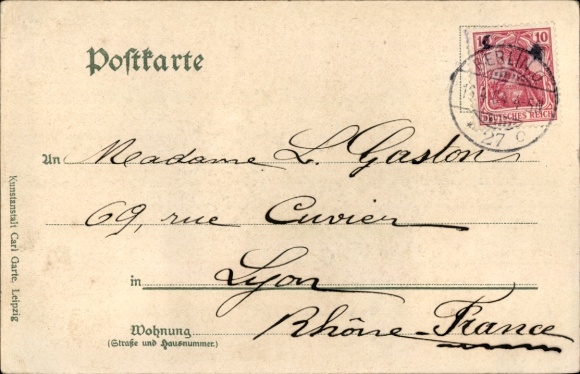 Postkarte
10
DEUTSCHES REICH
BERLIN
27
An Madame L. Gaston
69, rue Cuvier
in Lyon
Wohnung Rhône-France
(Straße und Hausnummer.)
Kunstanstalt Carl Garte, Leipzig